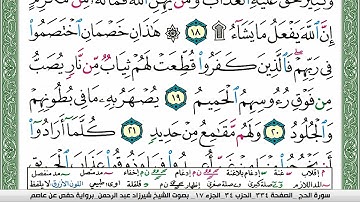 وكثير حق عليه العذاب ومن يهن الله فما له من مكرم
إِنَّ ٱللَّهَ يَفْعَلُ مَا يَشَآءُ ۩ ١٨ ۞ هَٰذَانِ خَصْمَانِ ٱخْتَصَمُوا۟
فِى رَبِّهِمْ ۖ فَٱلَّذِينَ كَفَرُوا۟ قُطِّعَتْ لَهُمْ ثِيَابٌ مِّن نَّارٍ يُصَبُّ
مِن فَوْقِ رُءُوسِهِمُ ٱلْحَمِيمُ ١٩ يُصْهَرُ بِهِۦ مَا فِى بُطُونِهِمْ
وَٱلْجُلُودُ ٢٠ وَلَهُم مَّقَٰمِعُ مِنْ حَدِيدٍ ٢١ كُلَّمَآ أَرَادُوٓا۟
سورة الحج _ الصفحة ٣٣٤ _ الحزب ٣٤ _ الجزء ١٧ _ بصوت الشيخ شيرزاد عبد الرحمن _ برواية حفص عن عاصم